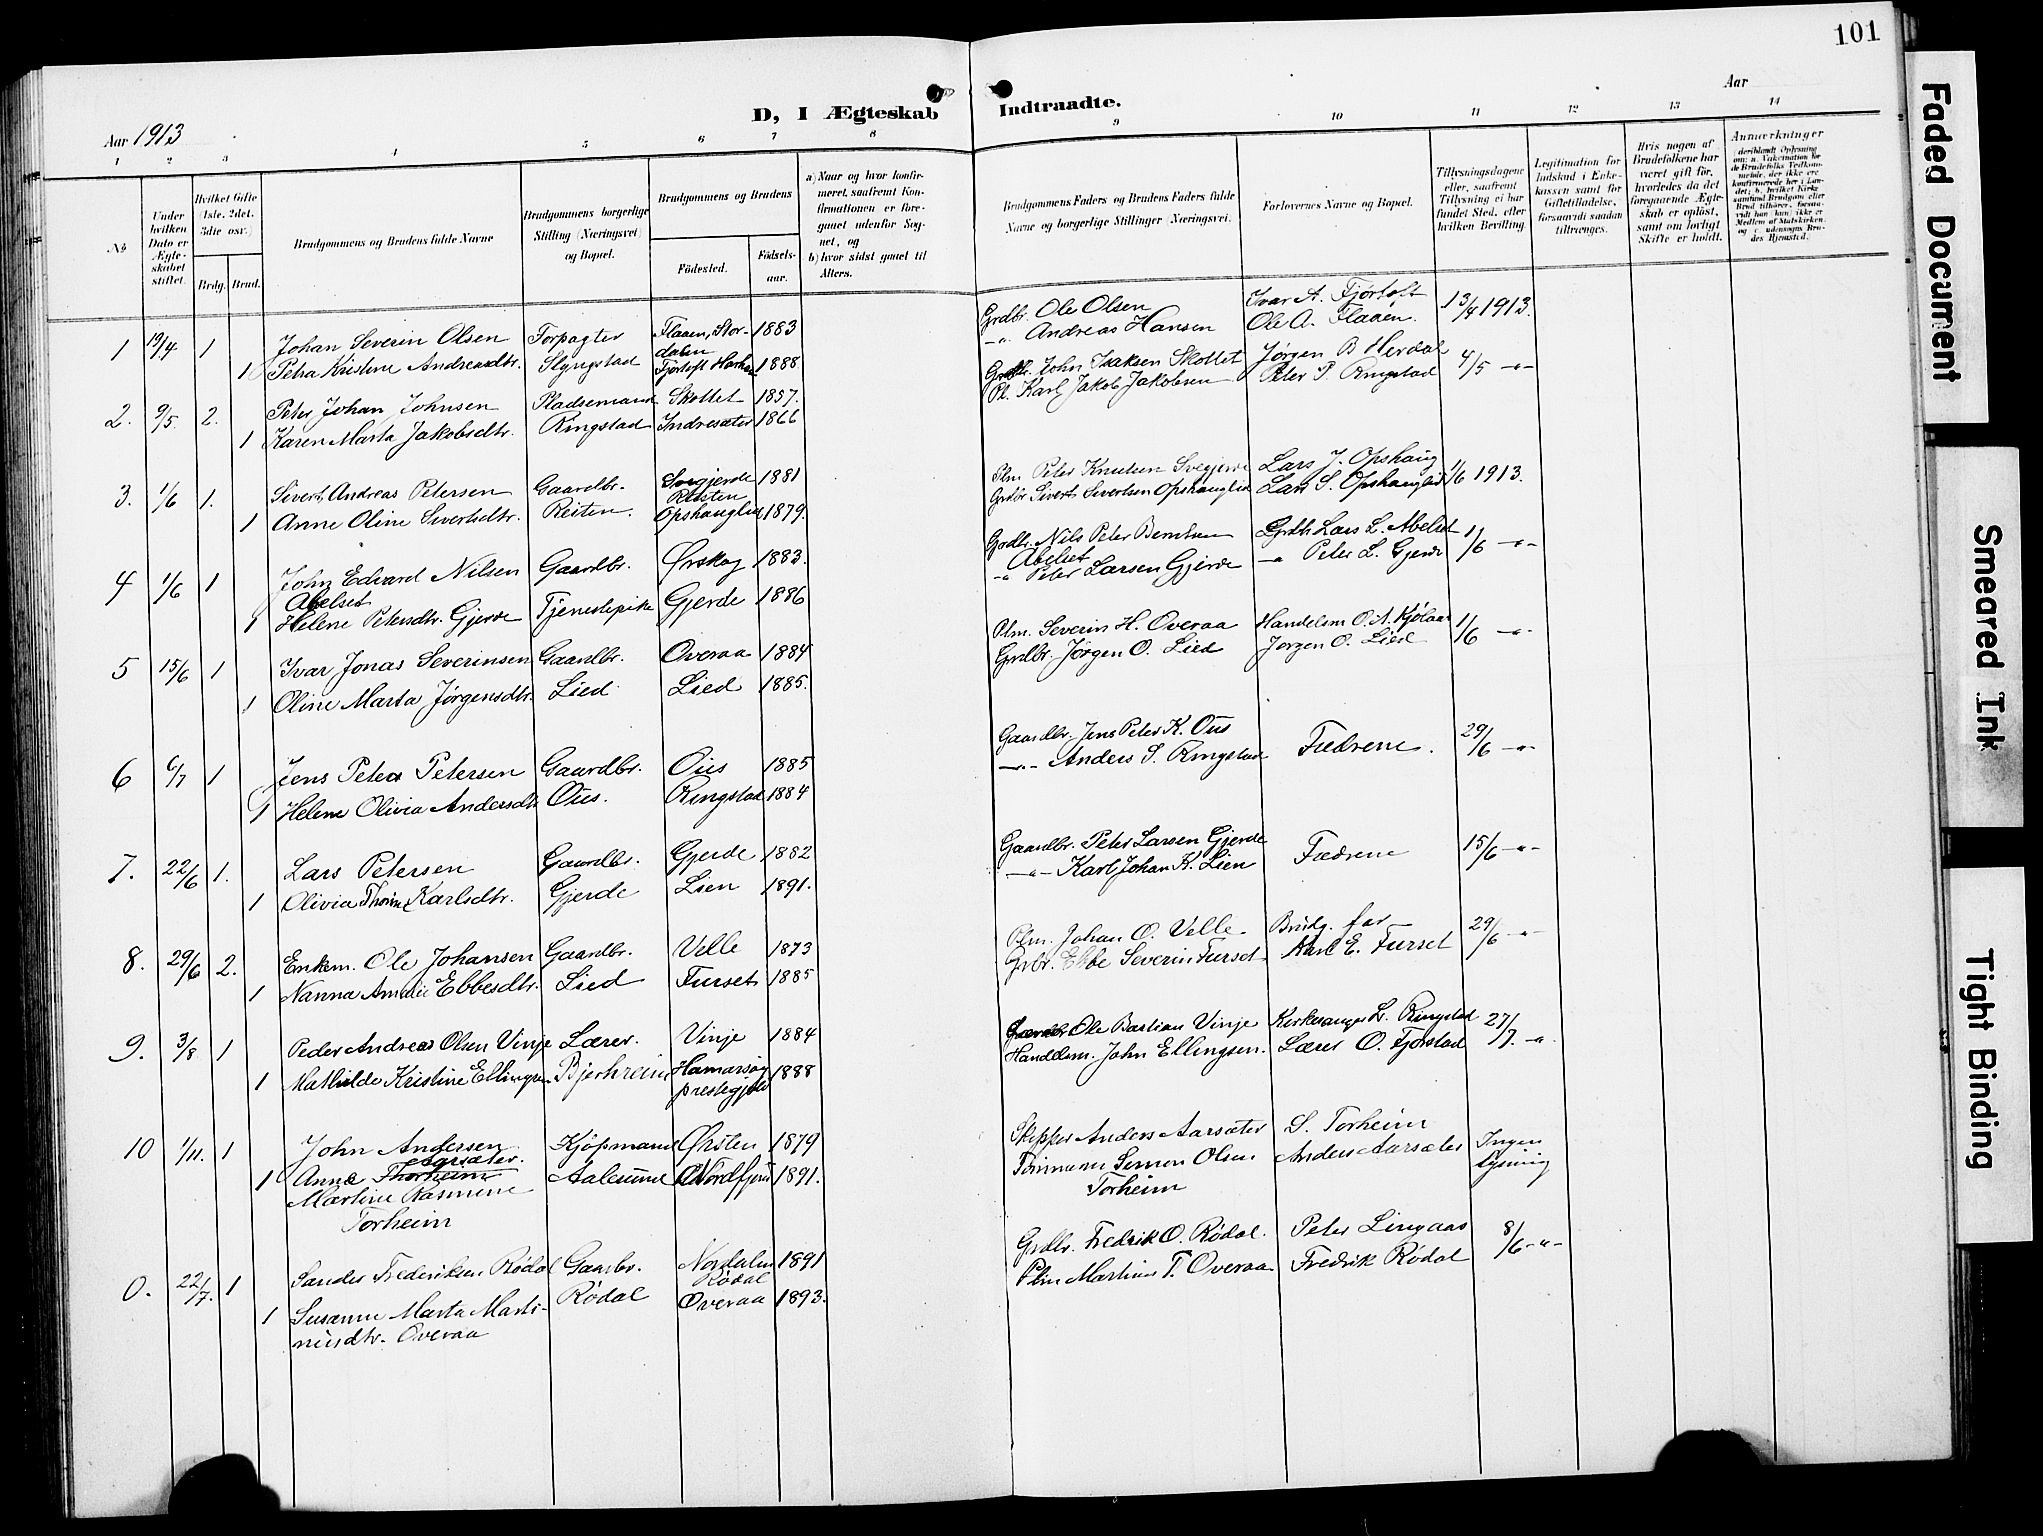 101
Faded Document
Smeared Ink
Tight Binding
D, I Ægteskab Indtraadte.
Aar 1913
Aar
1 2 3 4 5 6 7 8 9 10 11 12 13 14
No
Under hvilken Dato er Ægteskabet stiftet.
Hvilket Gifte (1ste, 2det, 3die osv.)
Brdg. Brud.
Brudgommens og Brudens fulde Navne
Brudgommens borgerlige Stilling (Næringsvei) og Bopæl.
Brudgommens og Brudens
Fødested.
Fødsels-aar.
a) Naar og hvor konfirmeret, saafremt Konfirmationen er foregaaet udenfor Sognet, og
b) hvor sidst gaaet til Alters.
Brudgommens Faders og Brudens Faders fulde Navne og borgerlige Stillinger (Næringsvei).
Forlovernes Navne og Bopæl.
Tillysningsdagene eller, saafremt Tillysning ei har fundet Sted, efter hvilken Bevilling.
Legitimation for Indskud i Enkekassen samt for Giftetilladelse, forsaavidt saadan tiltrænges.
Hvis nogen af Brudefolkene har været gift før, hvorledes da det foregaaende Ægteskab er opløst, samt om lovligt Skifte er holdt.
Anmærkninger
1 19/4 1 Johan Severin Olsen Forpagter Flaaen, Stordalen 1883 Grdbr. Ole Olsen Ivar A. Fjørtoft 13/4 1913.
1 Petra Kristine Andreasdtr. Slyngstad Fjørtoft Harham 1888 -"- Andreas Hansen Ole A. Flaaen.
2. 9/5. 2. Peter Johan Johnsen Pladsemand Skottet 1857. John Isaksen Skottet Jørgen B Herdal 4/5 -"-
1 Karen Marta Jakobsdtr. Ringstad Indresæter 1866 Pl. Karl Jakob Jakobsen Peter P. Ringstad
3. 1/6 1. Sivert Andreas Petersen Gaardbr. Svegjerde Reiten 1881 Plm. Peter Knutsen Svegjerde Lars J. Opshaug 1/6 1913.
1 Anne Oline Sivertsdtr. Reiten. Opshauglid 1879. Grdbr. Sivert Sivertsen Opshauglid Lars S. Opshauglid
4 1/6 1 John Edvard Nilsen Abelset Gaardbr. Ørskog 1883. Grdbr. Nils Peter Berntsen Abelset Grdbr. Lars L. Abelset 1/6 -"-
1 Helene Petersdtr. Gjerde Tjenestepike Gjerde 1886 -"- Peter Larsen Gjerde -"- Peter L. Gjerde
5 15/6 1 Ivar Jonas Severinsen Gaardbr. Overaa 1884 Plm. Severin H. Overaa Handelsm O. A. Kjølaas 1/6 -"-
1 Oline Marta Jørgensdtr. Lied. Lied 1885. Grdbr. Jørgen O. Lied Jørgen O. Lied
6 6/7 1 Jens Peter Petersen Gaardbr. Ous 1885 Gaardbr. Jens Peter K. Ous Fædrene. 29/6 -"-
1 Helene Olivia Andersdtr Ous. Ringstad 1884 -"- Anders S. Ringstad
7. 22/6 1. Lars Petersen Gaardbr. Gjerde 1882 Gaardbr. Peter Larsen Gjerde Fædrene 15/6 -"-
1 Olivia Thorine Karlsdtr. Gjerde Lien 1891. -"- Karl Johan K. Lien
8. 29/6 2. Enkem. Ole Johansen Gaardbr. Velle 1873 Plm. Johan O. Velle. Brudg. far 29/6 -"-
1 Nanna Amalie Ebbesdtr. Lied Furset 1885 Grbr. Ebbe Severin Furset Karl E. Furset
9. 3/8 1 Peder Andreas Olsen Vinje Lærer. Vinje 1884 Ole Bastian Vinje Kirkesanger L. Ringstad 27/7. -"-
1 Mathilde Kristine Ellingsen Bjerkreim Hamarsøy prestegjeld 1888 Handelsm. John Ellingsen. Lærer O. Fjørstad
10 1/11. 1 John Andersen Aarsæter. Kjøpmand Ørsten 1879 Skipper Anders Aarsæter S. Torheim Ingen lysning
1 Anna Thorheim Martine Rasmine Torheim Aalesund Nordfjord 1891. Tømmerm Simon Olsen Torheim Anders Aarsæter
0. 22/7. 1 Sander Frederiksen Rødal Gaardbr. Nordalen Rødal 1891 Grdbr. Fredrik O. Rødal. Peter Lingaas 8/6 -"-
1 Susanne Marta Martinusdtr. Overaa Rødal Overaa 1893. Plm Martinus T. Overaa Fredrik Rødal